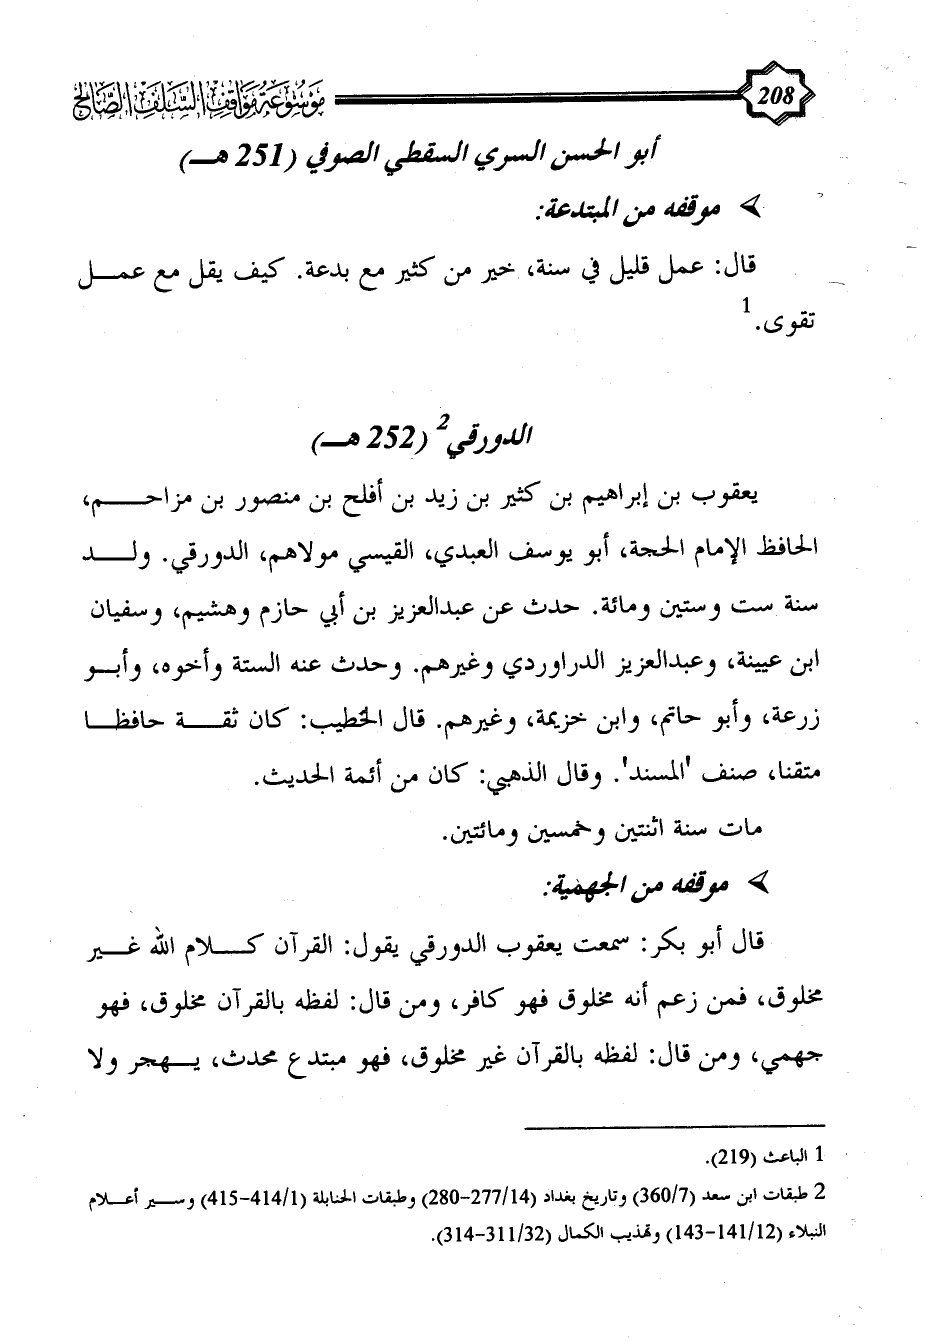 208
موسوعة مواقف السلف الصالح
أبو الحسن السري السقطي الصوفي (251 هـ)
موقفه من المبتدعة:
قال: عمل قليل في سنة، خير من كثير مع بدعة. كيف يقل مع عمل
تقوى.1
الدورقي2 (252 هـ)
يعقوب بن إبراهيم بن كثير بن زيد بن أفلح بن منصور بن مزاحم،
الحافظ الإمام الحجة، أبو يوسف العبدي، القيسي مولاهم، الدورقي. ولد
سنة ست وستين ومائة. حدث عن عبدالعزيز بن أبي حازم وهشيم، وسفيان
ابن عيينة، وعبدالعزيز الدراوردي وغيرهم. وحدث عنه الستة وأخوه، وأبو
زرعة، وأبو حاتم، وابن خزيمة، وغيرهم. قال الخطيب: كان ثقة حافظا
متقنا، صنف 'المسند'. وقال الذهبي: كان من أئمة الحديث.
مات سنة اثنتين وخمسين ومائتين.
موقفه من الجهمية:
قال أبو بكر: سمعت يعقوب الدورقي يقول: القرآن كلام الله غير
مخلوق، فمن زعم أنه مخلوق فهو كافر، ومن قال: لفظه بالقرآن مخلوق، فهو
جهمي، ومن قال: لفظه بالقرآن غير مخلوق، فهو مبتدع محدث، يهجر ولا
1 الباعث (219).
2 طبقات ابن سعد (360/7) وتاريخ بغداد (277/14-280) وطبقات الحنابلة (414/1-415) وسير أعلام
النبلاء (141/12-143) وتهذيب الكمال (311/32-314).